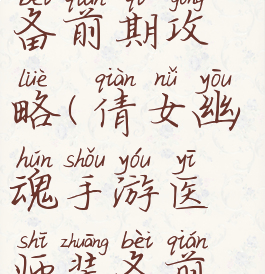 bèi qián qī gōng
备前期攻
lüè qiàn nǚ yōu
略(倩女幽
hún shǒu yóu yī
魂手游医
shī zhuāng bèi qián
师装备前